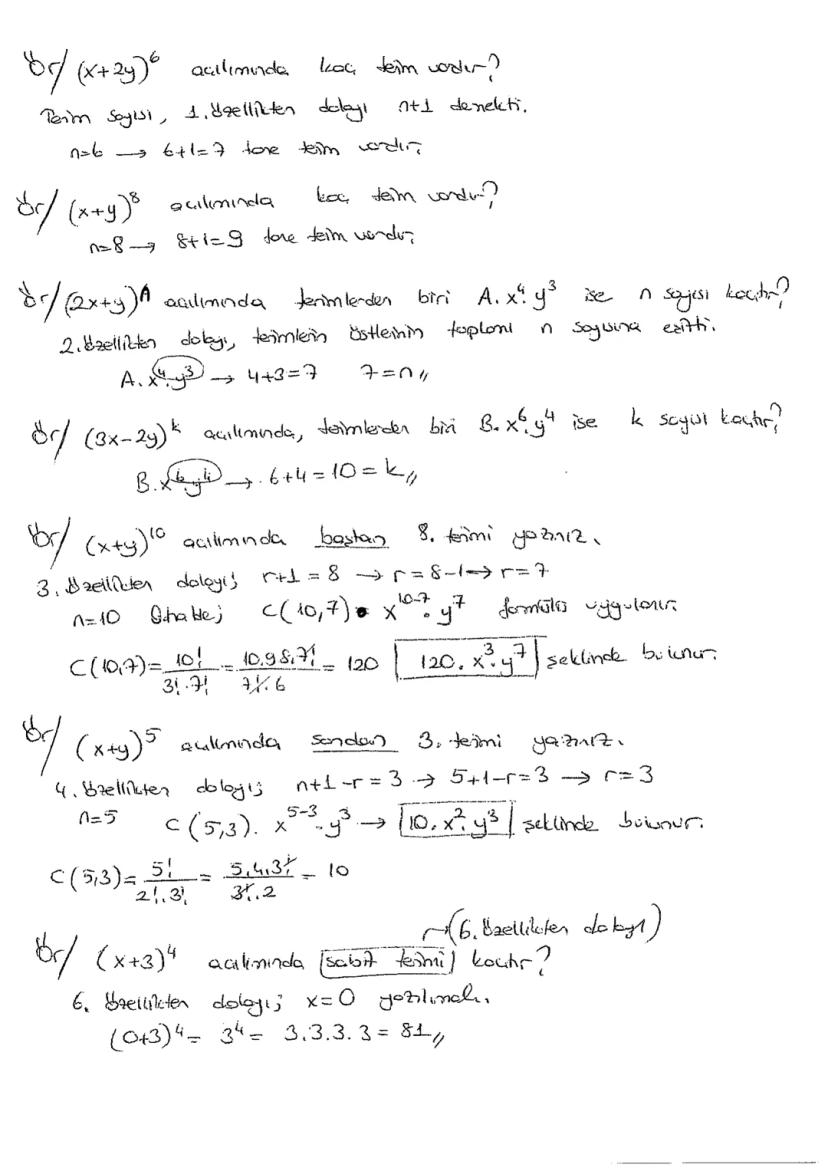 Ör/ (x+2y)^6 açılımında kaç terim vardır?
Terim sayısı, 1. özellikten dolayı n+1 demekti.
n=6 → 6+1=7 tane terim vardır.
Ör/ (x+y)^8 açılımında kaç terim vardır?
n=8 → 8+1=9 tane terim vardır.
Ör/ (2x+y)^n açılımında terimlerden biri A.x^4.y^3 ise n sayısı kaçtır?
2. özellikten dolayı, terimlerin üstlerinin toplamı n sayısına eşitti.
A.x^4.y^3 → 4+3=7 7=n//
Ör/ (3x-2y)^k açılımında, terimlerden biri B.x^6.y^4 ise k sayısı kaçtır?
B.x^6.y^4 → 6+4=10=k//
Ör/ (x+y)^10 açılımında baştan 8. terimi yazınız.
3. özellikten dolayı; r+1=8 → r=8-1 → r=7
n=10 O halde; C(10,7) . x^10-7 . y^7 formülü uygulanır.
C(10,7) = 10!/3!.7! = 10.9.8.7!/7!.6 = 120 120.x^3.y^7 şeklinde bulunur.
Ör/ (x+y)^5 açılımında sondan 3. terimi yazınız.
4. özellikten dolayı; n+1-r=3 → 5+1-r=3 → r=3
n=5 C(5,3). x^5-3 . y^3 → 10.x^2.y^3 şeklinde bulunur.
C(5,3) = 5!/2!.3! = 5.4.3!/3!.2 = 10
(6. özellikten dolayı)
Ör/ (x+3)^4 açılımında sabit terimi kaçtır?
6. özellikten dolayı; x=0 yazılmalı.
(0+3)^4 = 3^4 = 3.3.3.3 = 81//